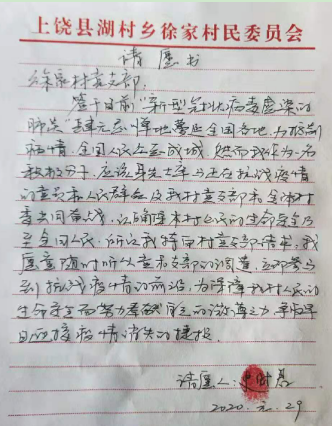 上饶县湖村乡徐家村民委员会
请愿书
徐家村党支部:
鉴于目前"新型冠状病毒感染的
肺炎"肆无忌惮地蔓延全国各地,为控制
疫情,全国人民众志成城,然而我作为一名
应该身先士卒与正在抗战疫情
的党员和人民群众及我村党支部和全体村
委共同奋战,以确保本村人民的生命安全及
至全国人民,所以我特向村党支部请求,我
愿意随时听从党和支部的调遣,立即奔马
到抗战疫情的前沿,为保障我村人民的
生命安全而努力奉献自己的微薄之力,争取早
日迎接疫情消失的捷报
请愿人:
2020.元.29